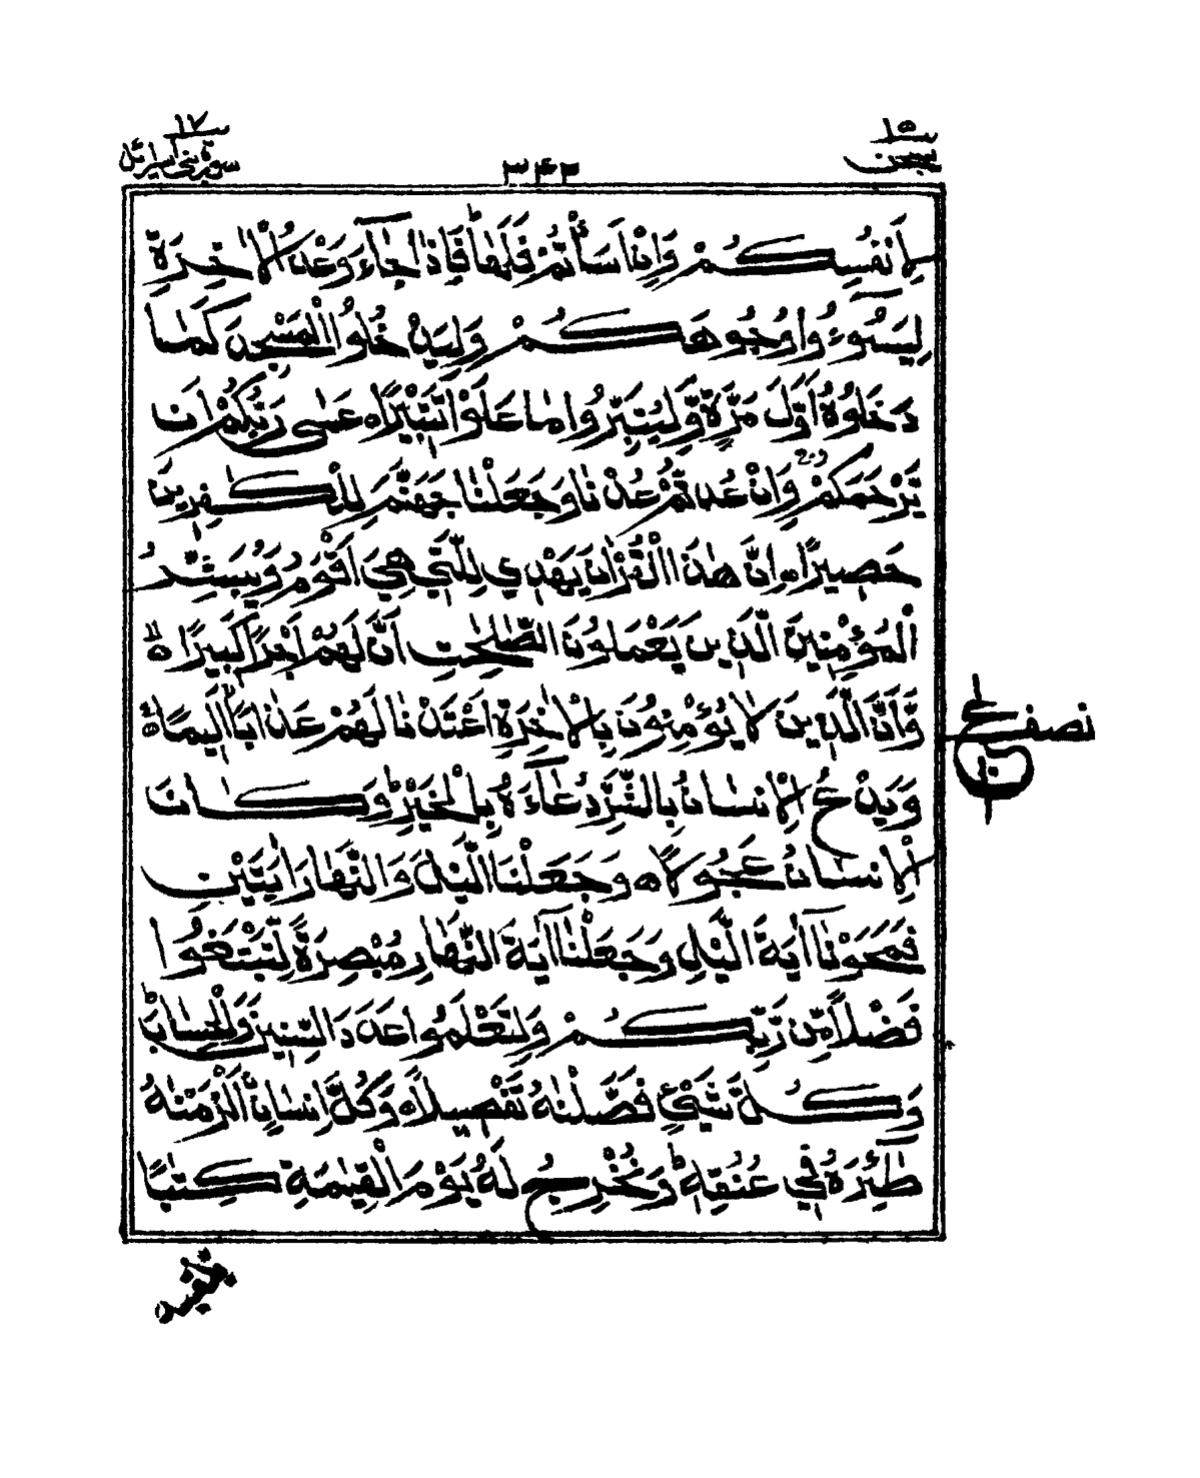 ١٧
سورة بنى اسرائل
٣٤٢
١٥
سبحن
لِاَنْفُسِكُمْ وَاِنْ اَسَاْتُمْ فَلَهَا فَاِذَا جَآءَ وَعْدُ الْاٰخِرَةِ
لِيَسُوْءُوا وُجُوْهَكُمْ وَلِيَدْخُلُوا الْمَسْجِدَ كَمَا
دَخَلُوْهُ اَوَّلَ مَرَّةٍ وَّلِيُتَبِّرُوْا مَا عَلَوْا تَتْبِيْرًا ه عَسٰى رَبُّكُمْ اَنْ
يَّرْحَمَكُمْ وَاِنْ عُدْتُّمْ عُدْنَا وَجَعَلْنَا جَهَنَّمَ لِلْكٰفِرِيْنَ
حَصِيْرًا ه اِنَّ هٰذَا الْقُرْاٰنَ يَهْدِيْ لِلَّتِيْ هِيَ اَقْوَمُ وَيُبَشِّرُ
الْمُؤْمِنِيْنَ الَّذِيْنَ يَعْمَلُوْنَ الصّٰلِحٰتِ اَنَّ لَهُمْ اَجْرًا كَبِيْرًا ه
وَّاَنَّ الَّذِيْنَ لَا يُؤْمِنُوْنَ بِالْاٰخِرَةِ اَعْتَدْنَا لَهُمْ عَذَابًا اَلِيْمًا ه
وَيَدْعُ الْاِنْسَانُ بِالشَّرِّ دُعَآءَهٗ بِالْخَيْرِ وَكَانَ
الْاِنْسَانُ عَجُوْلًا ه وَجَعَلْنَا الَّيْلَ وَالنَّهَارَ اٰيَتَيْنِ
فَمَحَوْنَآ اٰيَةَ الَّيْلِ وَجَعَلْنَآ اٰيَةَ النَّهَارِ مُبْصِرَةً لِّتَبْتَغُوْا
فَضْلًا مِّنْ رَّبِّكُمْ وَلِتَعْلَمُوْا عَدَدَ السِّنِيْنَ وَالْحِسَابَ
وَكُلَّ شَيْءٍ فَصَّلْنٰهُ تَفْصِيْلًا ه وَكُلَّ اِنْسَانٍ اَلْزَمْنٰهُ
طٰٓئِرَهٗ فِيْ عُنُقِهٖ وَنُخْرِجُ لَهٗ يَوْمَ الْقِيٰمَةِ كِتٰبًا
نصف
ع